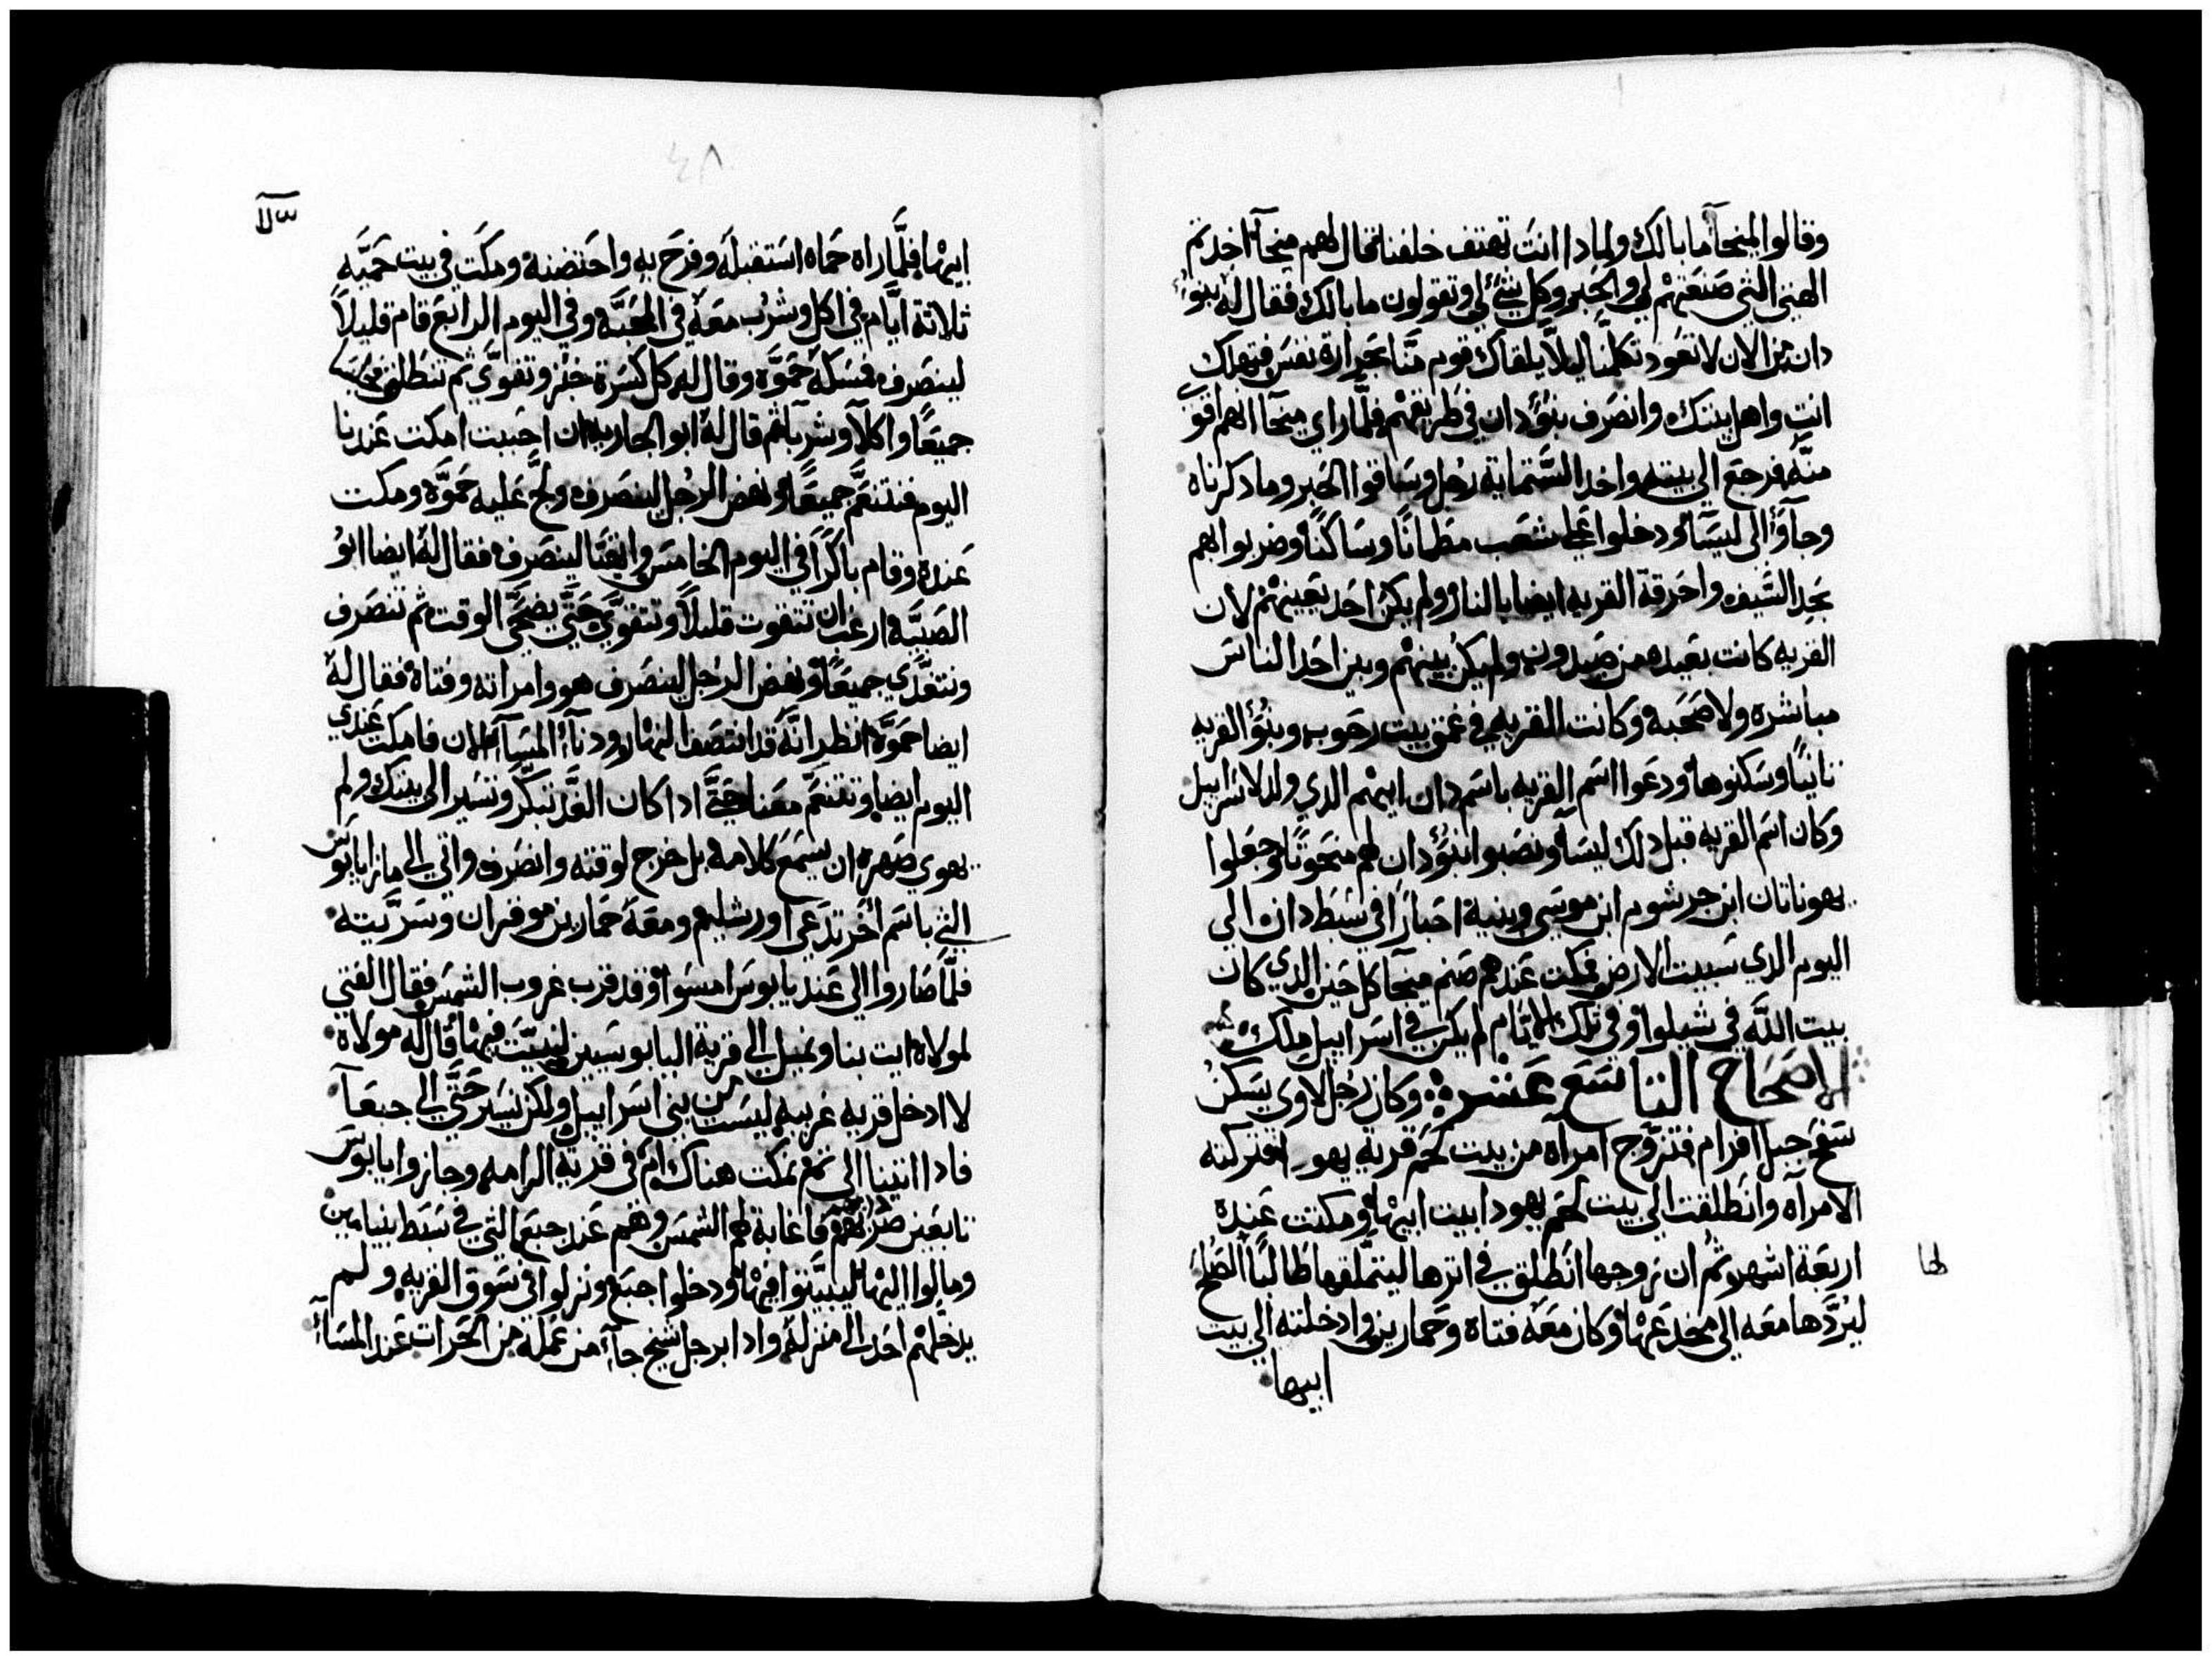 وقالوا لميخآ ما بالك ولمادا انت تهتف خلفنا فقال لهم ميخآ اخدتم
الهتي التي صنعتهم لي والحبر وكل شئ لي وتقولون ما بالك فقال له بنو
دان من الان لا تعود تكلمنا ليلا يلقاك قوم منا بحرارة نفس فتهلك
انت واهل بيتك وانصرف بنو دان في طريقهم فلما راي ميخآ انهم اقوي
منه فرجع الي بيته واخد الستماية رجل وساقوا الحبر وما دكرناه
وجآوا الي ليسآ ودخلوا علي شعب مطمانا وساكنا وضربوا بهم
بحد السيف واحرقة القريه ايضا بالنار ولم يكن احد يعينهم لان
القريه كانت بعيده من صيدون ولم يكن بينهم وبين احد الناس
مباشره ولا صحبه وكانت القريه في غمق بيت رحوب وبنو القريه
ثانيا وسكنوها ودعوا اسم القريه باسم دان ابيهم الدي ولد لاسراييل
وكان اسم القريه قبل دلك ليسا ونصبوا بنو دان لهم منحوتا وجعلوا
يهوناتان ابن جرشوم ابن موسي وبنيه احبارا في سبط دان الي
اليوم الدي سبيت الارض فمكت عندهم صنم ميخآ كل حين الدي كان
بيت الله في شيلوا وفي تلك الايام لم يكن في اسراييل ملك
الاصحاح التاسع عشرة وكان رجل لاوي يسكن
سفح جبل افرام فتزوج امرآه من بيت لحم قرية يهودا فتركته
الامرآه وانطلقت الي بيت لحم يهودا بيت ابيها ومكتت عنده
اربعة اشهر تم ان زوجها انطلق في اترها ليتملقها طالبا الصلح
ليردها معه الي مخدعها وكان معه فتاه وحمارين وادخلته الي بيت
لها
ابيها
ابيها فلما راه حماه استقبله وفرح به واحتضنه ومكت في بيت حميه
ثلاتة ايام في اكل وشرب معه في المحبه وفي اليوم الرابع قام قليلا
لينصرف فمسكه حموه وقال له كل كسرة خبز وتقوي ثم تنطلق
جميعا واكلا وشربا ثم قال له ابو الجاريه ان احببت امكت عندنا
اليوم فنتنعم جميعا ونهض الرجل لينصرف ولج عليه حموه ومكت
عنده وقام باكرا في اليوم الخامس وايقنا لينصرف فقال له ايضا ابو
الصبيه ارغب ان تتقوت قليلا وتتقوي حتي يضحي الوقت ثم تنصرف
ونتغدي جميعا ونهض الرجل لينصرف هو وامراته وفتاه فقال له
ايضا حموه انظر انه قد انتصف النهار ودنآ المسآ الان فامكت عندي
اليوم ايضا وتتنعم معنا حتي ادا كان الغد تبكر وتسير الي بيتك ولم
يهوي صهره ان يسمع كلامه بل خرج لوقته وانصرف واتي الي مازا يابوس
التي باسم اخر تدعي اورشليم ومعه حمارين موقران وسريته
فلما صاروا الي عند يابوس امسوا وقد قرب غروب الشمس فقال الفتي
لمولاه ايت بنا ونميل الي قرية اليابوسيين لنبيت فيها قال له مولاه
لا ادخل قريه غريبه ليست من بني اسراييل ولكن نسير حتي الي جبعآ
فادا اتينا الي تم نمكت هناك ام في قرية الرامه وجازوا يابوس
تابعين طريقهم فاغابة لهم الشمس وهم عند جبعا التي في سبط بنيامين
ومالوا اليها ليبيتوا فيها ودخلوا جبع ونزلوا في سوق القريه ولم
يدخلهم احد الي منزله وادا برجل شيخ جآء من عمله من الحرات عند المسآء